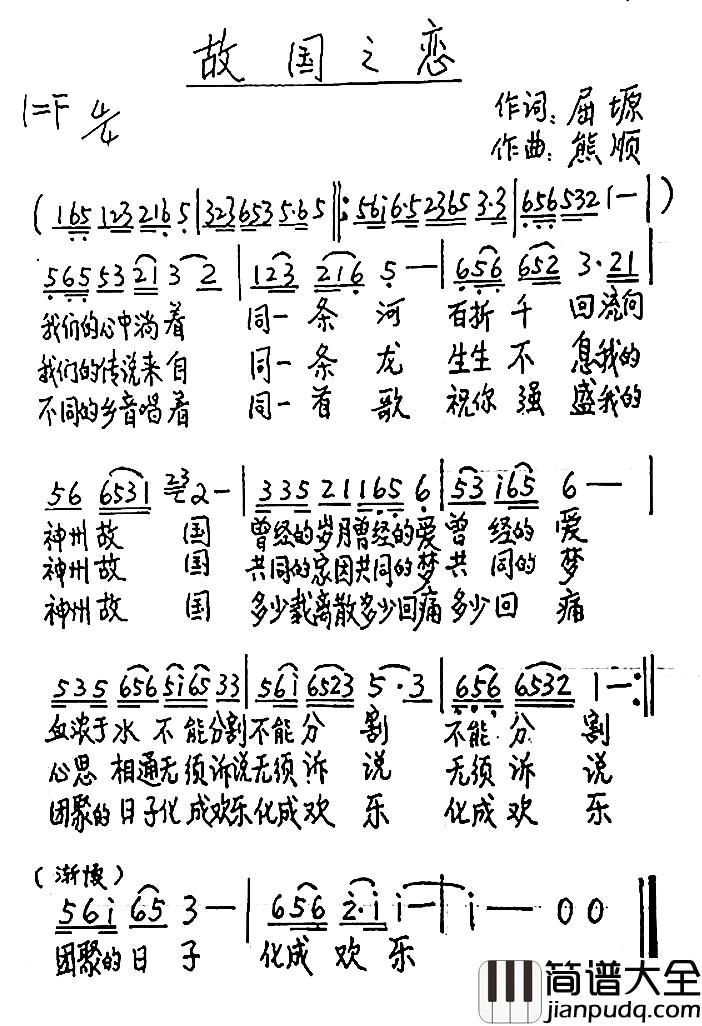 故国之恋
1=F 4/4
作词:屈塬
作曲:熊顺
(165 123 216 5|323 653 5·6 5‖:56i 6·5 2365 3·3|656 532 1—|)
565 53 21 3 2|123 216 5—|656 652 3·21|
我们的心中淌着 同一条河 百折千回流向
我们的传说来自 同一条龙 生生不息我的
不同的乡音唱着 同一首歌 祝你强盛我的
56 6531 23 2—|335 21 165 6|53 i65 6——|
神州故国 曾经的岁月曾经的爱曾经的爱
神州故国 共同的家园共同的梦共同的梦
神州故国 多少载离散多少回痛多少回痛
535 656 5i65 33|56i 6523 5·3|656 6532 1—:‖
血浓于水不能分割不能分割 不能分割
心思相通无须诉说无须诉说 无须诉说
团聚的日子化成欢乐化成欢乐 化成欢乐
(渐慢)
56i 65 3—|656 2·i i—|i—00‖
团聚的日子 化成欢乐
简谱大全
jianpudq.com